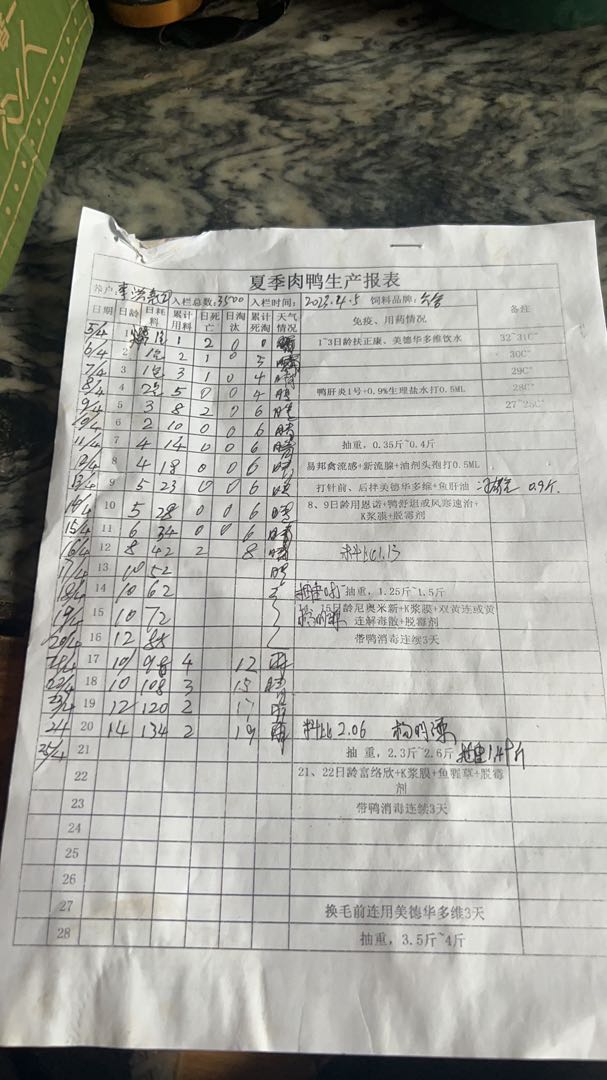 夏季肉鸭生产报表
养户: 李 入栏总数: 3500 入栏时间: 2023.4.5 饲料品牌:
日期 日龄 日耗料 累计用料 日死亡 日淘汰 累计死淘 天气情况 免疫、用药情况 备注
5/4 1 1 2 0 1~3日龄扶正康、美德华多维饮水 32~31C°
6/4 2 2 1 0 3 30C°
7/4 3 3 1 0 4 晴 29C°
8/4 4 5 0 0 4 晴 鸭肝炎1号+0.9%生理盐水打0.5ML 28C°
9/4 5 3 8 2 0 6 晴
10/4 6 2 10 0 0 6 晴
11/4 7 4 14 0 0 6 晴 抽重,0.35斤~0.4斤
12/4 8 4 18 0 0 6 晴 易邦禽流感+新流腺+油剂头孢打0.5ML
13/4 9 5 23 0 0 6 晴 打针前、后拌美德华多维+鱼肝油 0.9斤
14/4 10 5 28 0 0 6 晴 8、9日龄用恩诺+鸭舒坦或风寒速治+K浆膜+脱霉剂
15/4 11 6 34 0 0 6 晴
16/4 12 8 42 2 8 晴 料比1.13
17/4 13 10 52 晴
18/4 14 10 62 抽重,1.25斤~1.5斤
19/4 15 10 72 15日龄尼奥米新+K浆膜+双黄连或黄连解毒散+脱霉剂
20/4 16 12 88 带鸭消毒连续3天
17 10 98 4 12 雨
22/4 18 10 108 3 15 晴
23/4 19 12 120 2 17
24 20 14 134 2 19 雨 料比2.06
25/4 21 抽重,2.3斤~2.6斤 抽重1.49斤
22 21、22日龄富络欣+K浆膜+鱼腥草+脱霉剂
23 带鸭消毒连续3天
24
25
26
27 换毛前连用美德华多维3天
28 抽重,3.5斤~4斤